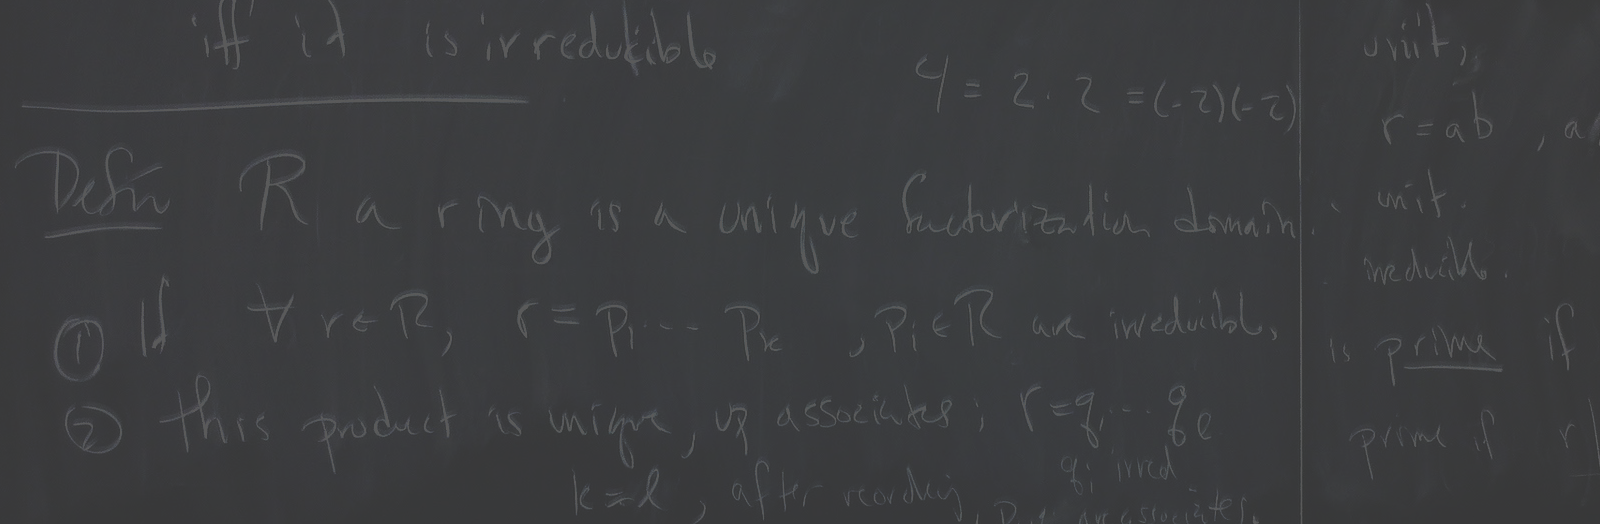 iff it is irreducible
4 = 2 · 2 = (-2)(-2)
Defn R a ring is a unique factorization domain.
① If ∀ r ∈ R, r = p₁ ··· pₖ, pᵢ ∈ R are irreducible,
② this product is unique, up associates; r = q₁ ··· qₗ
qᵢ irred
k = l, after reordering, are associates.
unit,
r = ab, a
unit.
irreducible.
is prime if
prime if r |